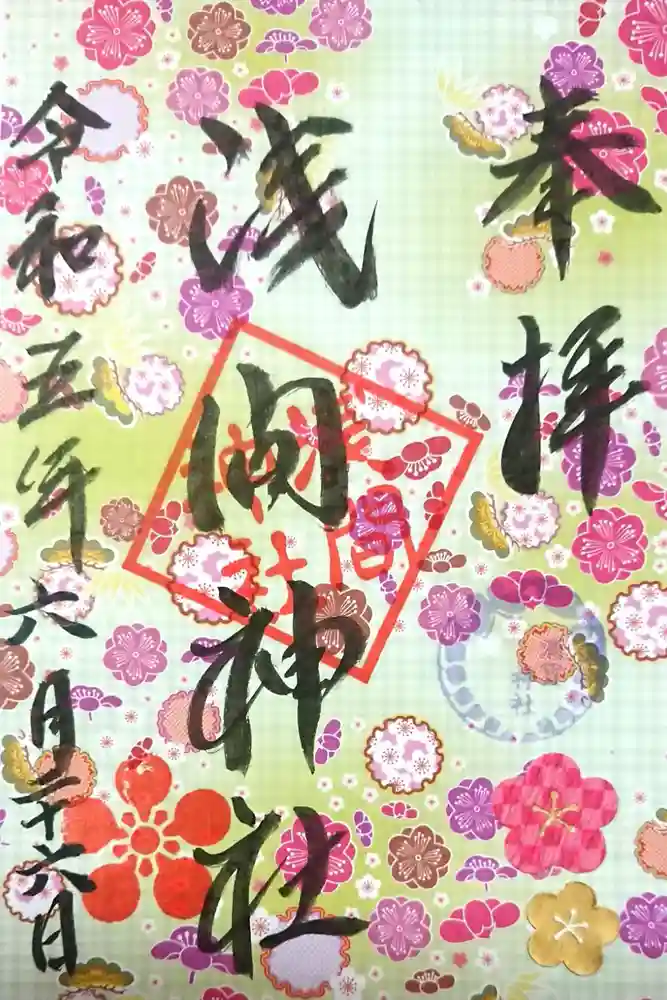 奉拝
浅間神社
浅間
神社
令和五年六月二十六日